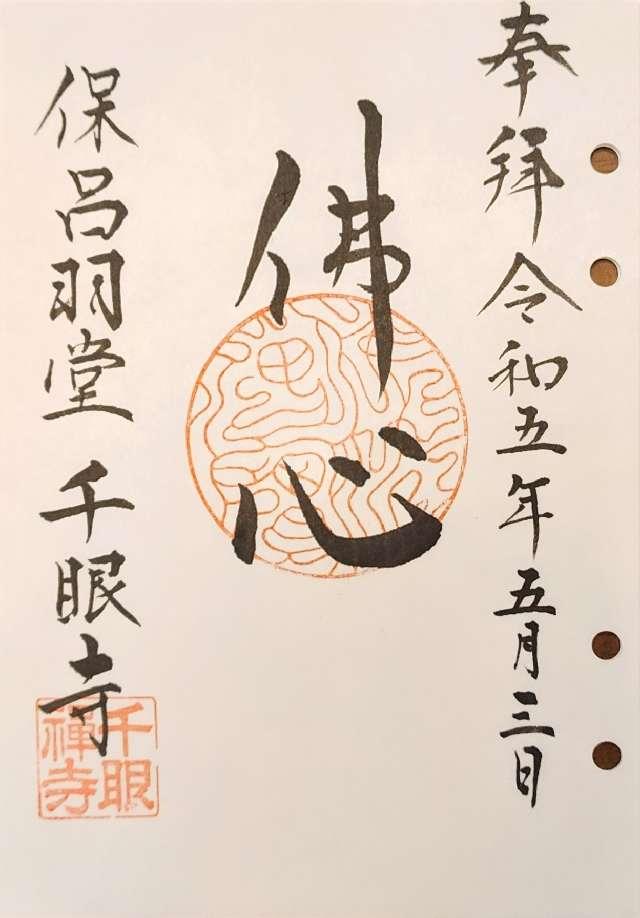 奉拝令和五年五月三日
佛心
保呂羽堂千眼寺
千眼
禅寺